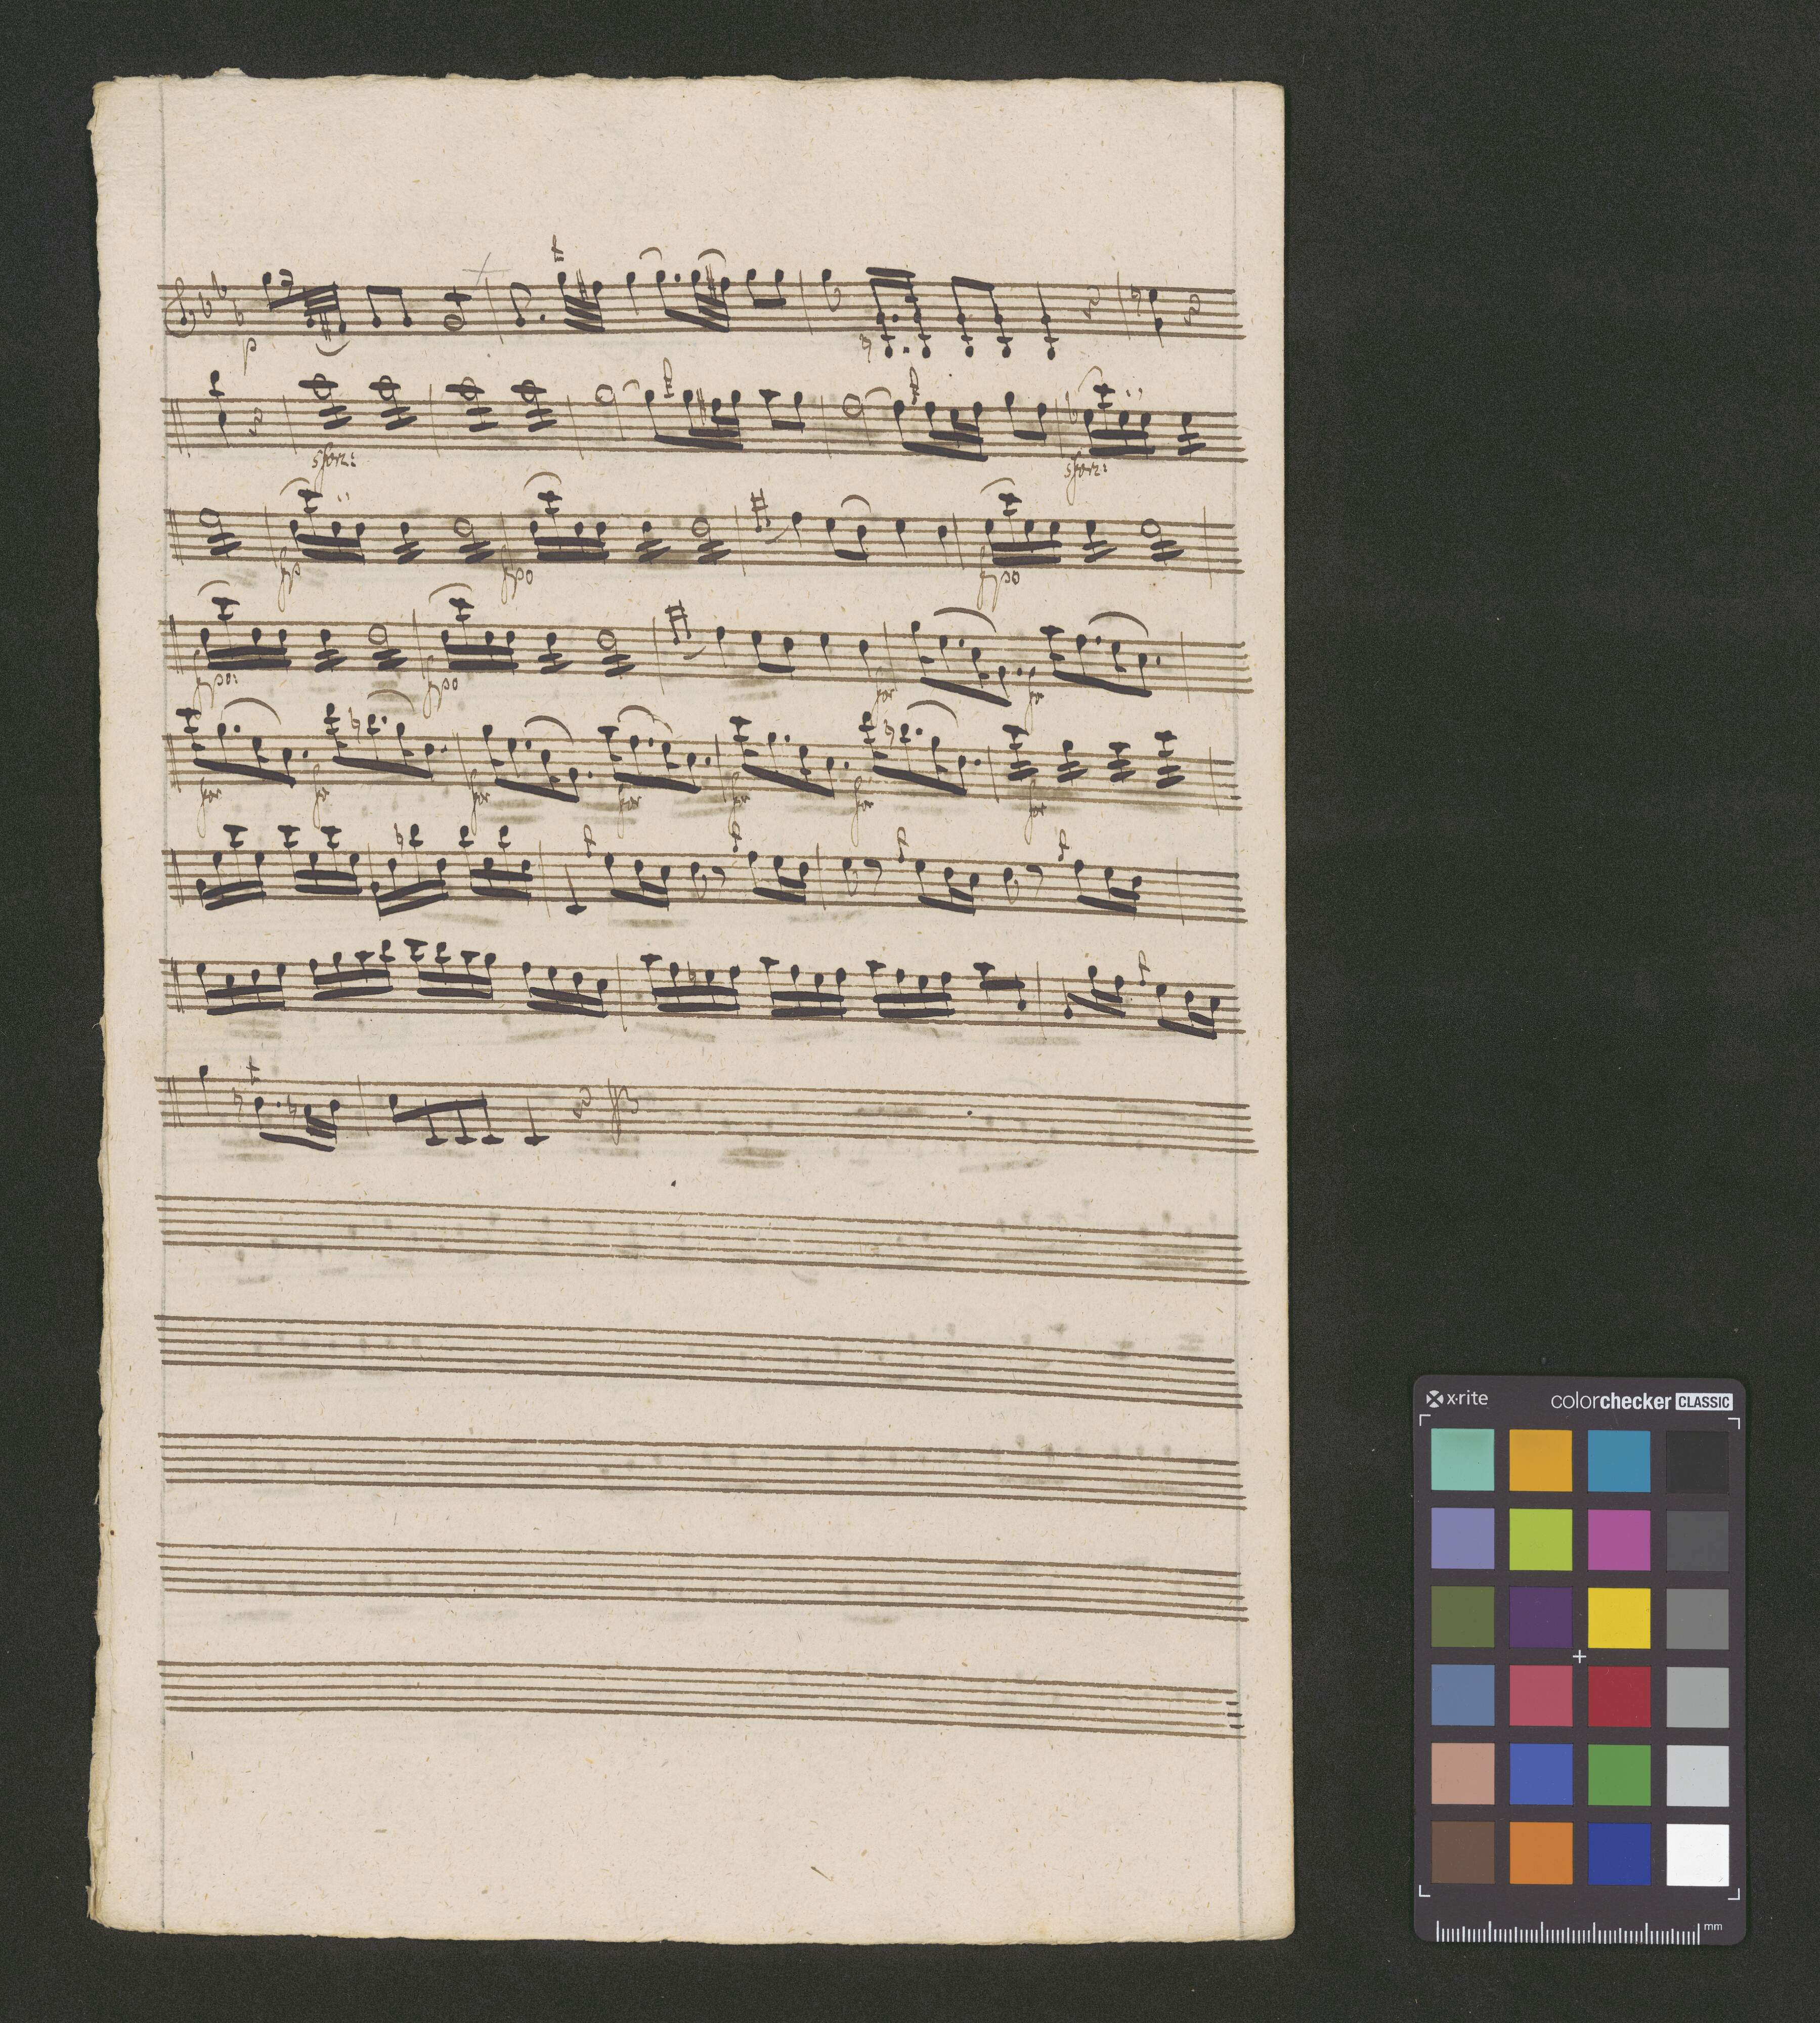 p
sforz: sforz:
fp fpo fpo
fpo: fpo for for
for for for for for for for
x·rite colorchecker CLASSIC
mm